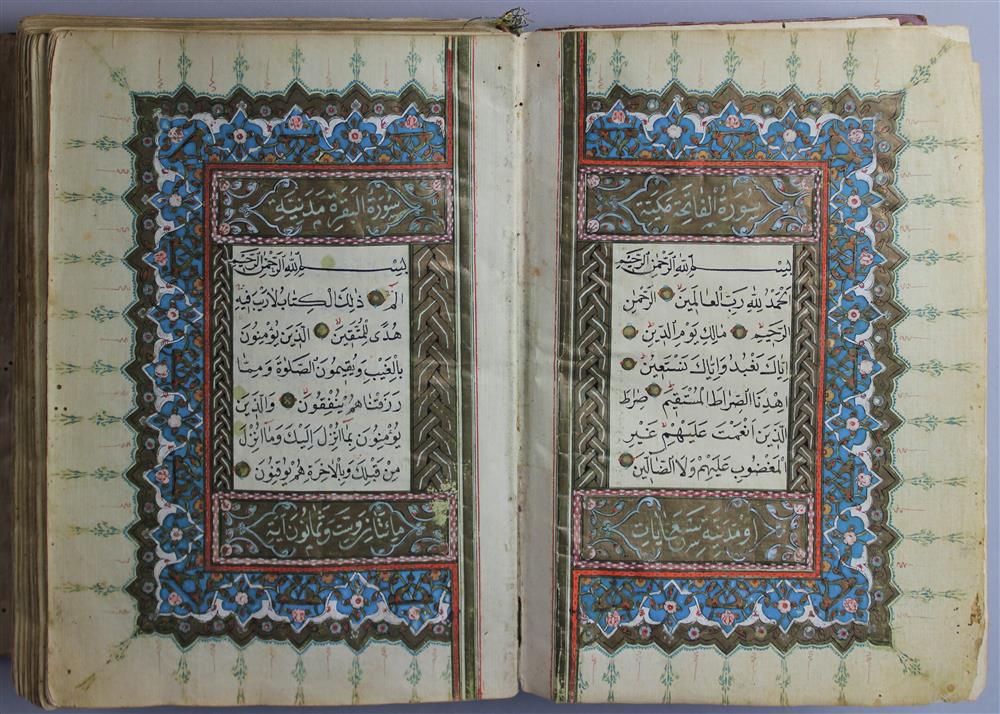 سورة الفاتحة مكية
بسم الله الرحمن الرحيم
الحمد لله رب العالمين الرحمن
الرحيم مالك يوم الدين
اياك نعبد واياك نستعين
اهدنا الصراط المستقيم صراط
الذين انعمت عليهم غير
المغضوب عليهم ولا الضالين
او مدينة سبع ايات
سورة البقرة مدنية
بسم الله الرحمن الرحيم
الم ذلك الكتاب لا ريب فيه
هدى للمتقين الذين يؤمنون
بالغيب ويقيمون الصلاة ومما
رزقناهم ينفقون والذين
يؤمنون بما انزل اليك وما انزل
من قبلك وبالاخرة هم يوقنون
مائتان وست وثمانون آية